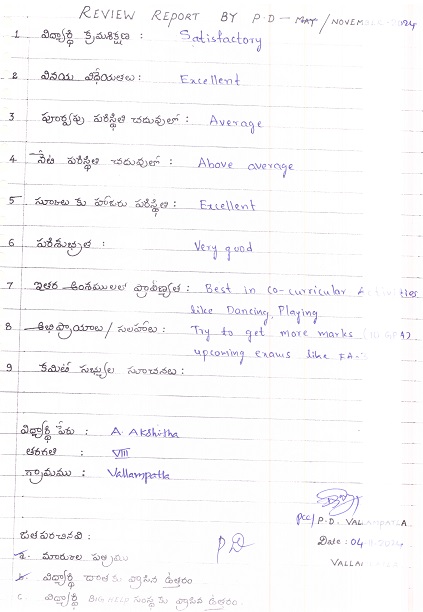 REVIEW REPORT BY P.D - MAY / NOVEMBER - 2024
1 విద్యార్థి క్రమశిక్షణ : Satisfactory
2 వినయ విధేయతలు : Excellent
3 పూర్వపు పరిస్థితి చదువులో : Average
4 నేటి పరిస్థితి చదువులో : Above average
5 స్కూలు కు హాజరు పరిస్థితి : Excellent
6 పరిశుభ్రత : Very good
7 ఇతర అంశములలో ప్రావీణ్యత : Best in co-curricular Activities
like Dancing, Playing
8 అభిప్రాయాలు / సలహాలు : Try to get more marks
upcoming exams like FA-
9 కమిటీ సభ్యుల సూచనలు :
విద్యార్థి పేరు : A. Akshitha
తరగతి : VIII
గ్రామము : Vallampatla
PCC/ P.D. VALLAMPATLA
Date : 04
జతపరచినవి :
P D
VALLA
a. మార్కుల పత్రము
b. విద్యార్థి దాతకు వ్రాసిన ఉత్తరం
c. విద్యార్థి BIG HELP సంస్థకు వ్రాసిన ఉత్తరం